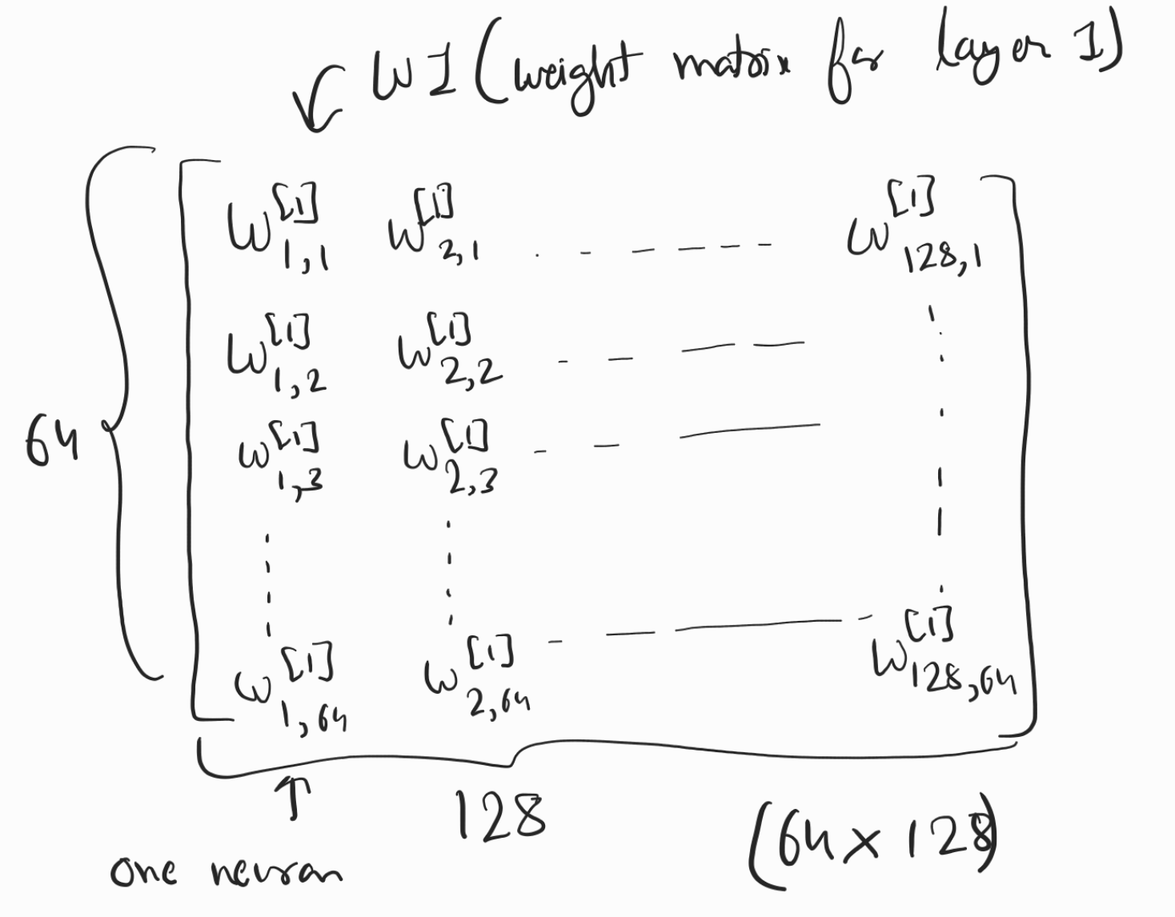 W1 (weight matrix for layer 1)
W[1]1,1 W[1]2,1 . - - - - - W[1]128,1
W[1]1,2 W[1]2,2 - - - -
64
W[1]1,3 W[1]2,3 - - -
W[1]1,64 W[1]2,64 - - - - W[1]128,64
↑ 128 (64 x 128)
one neuron